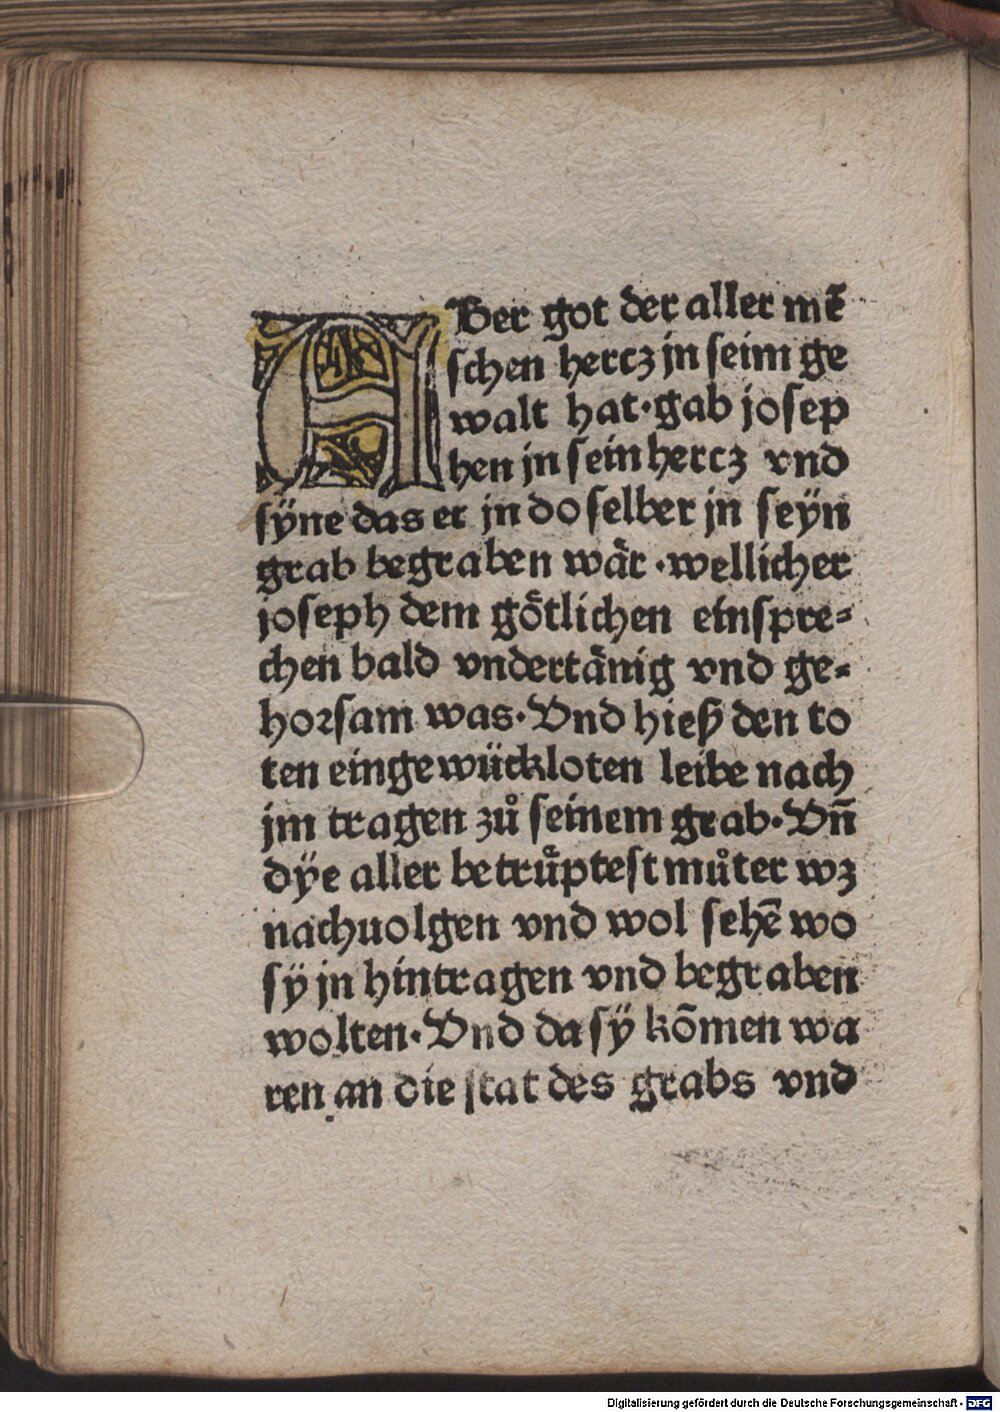 ABer got der aller mē
schen hercz jn seim ge
walt hat·gab josep
hen jn sein hercz vnd
sÿne das er jn do selber jn seÿn
grab begraben wär·wellicher
joseph dem götlichen einspre-
chen bald vndertänig vnd ge-
horsam was·Vnd hieß den to
ten eingewückloten leibe nach
jm tragen zů seinem grab·Vn̄
dÿe aller betrůptest můter wz
nachuolgen vnd wol sehē wo
sÿ jn hintragen vnd begraben
wolten·Vnd da sÿ kōmen wa
ren an die stat des grabs vnd
Digitalisierung gefördert durch die Deutsche Forschungsgemeinschaft - DFG